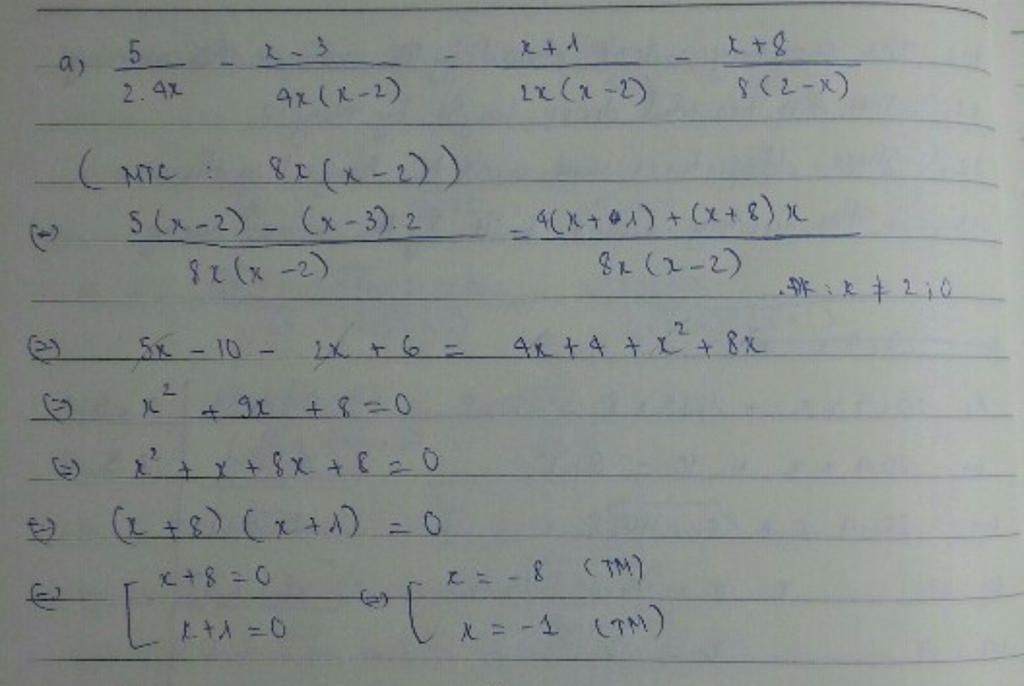 a) 5/(2.4x) - (x-3)/(4x(x-2)) = (x+1)/(2x(x-2)) - (x+8)/(8(2-x))
( MTC : 8x(x-2))
(=) (5(x-2) - (x-3).2)/(8x(x-2)) = (4(x+1) + (x+8)x)/(8x(x-2))
ĐK : x ≠ 2 ; 0
(=) 5x - 10 - 2x + 6 = 4x + 4 + x² + 8x
(=) x² + 9x + 8 = 0
(=) x² + x + 8x + 8 = 0
(=) (x + 8) (x + 1) = 0
(=) [ x + 8 = 0 (=) [ x = -8 (TM)
x + 1 = 0 x = -1 (TM)